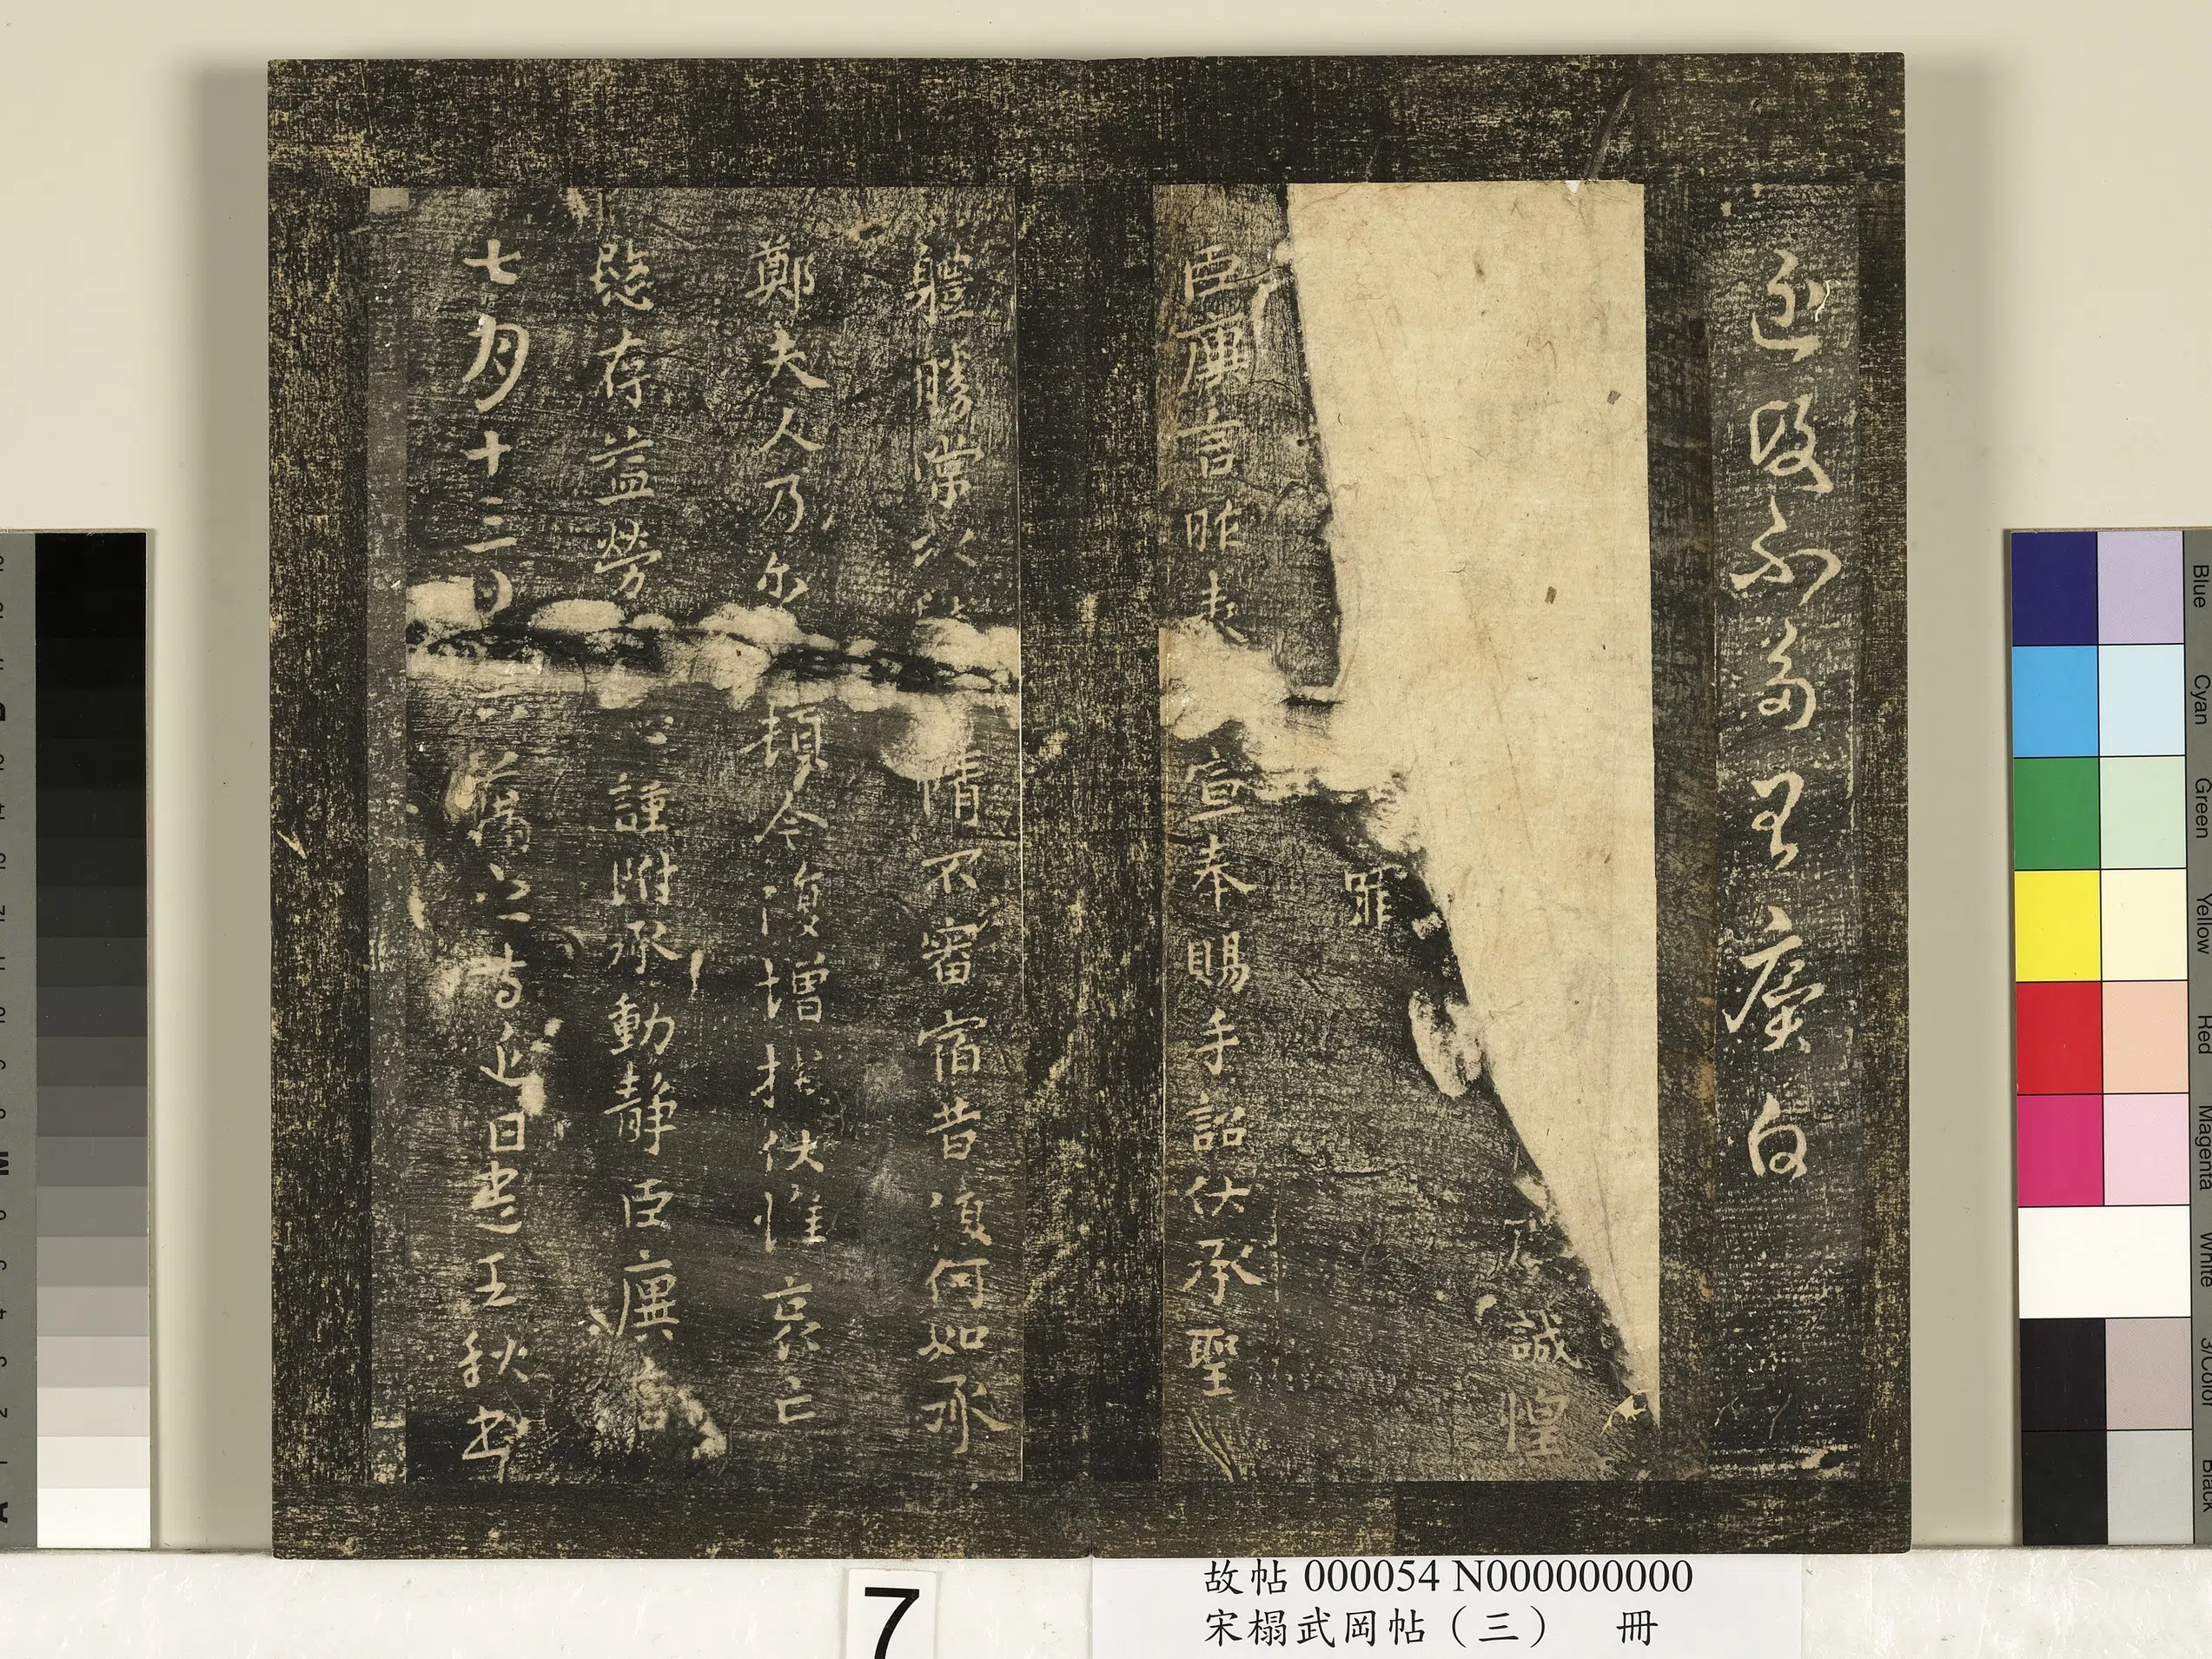 及不王廙白
誠惶
罪
臣廙言昨表宣奉賜手詔伏承聖
體勝常以情不審宿昔復何如承
鄭夫人乃尒頓今復增損伏惟哀亡
愍存益勞心謹附承動靜臣廙言
七月十三日藉之等近日遣王秋書
故帖 000054 N000000000
宋榻武岡帖（三） 冊
7
Blue
Cyan
Green
Yellow
Red
Magenta
White
3/Color
Black